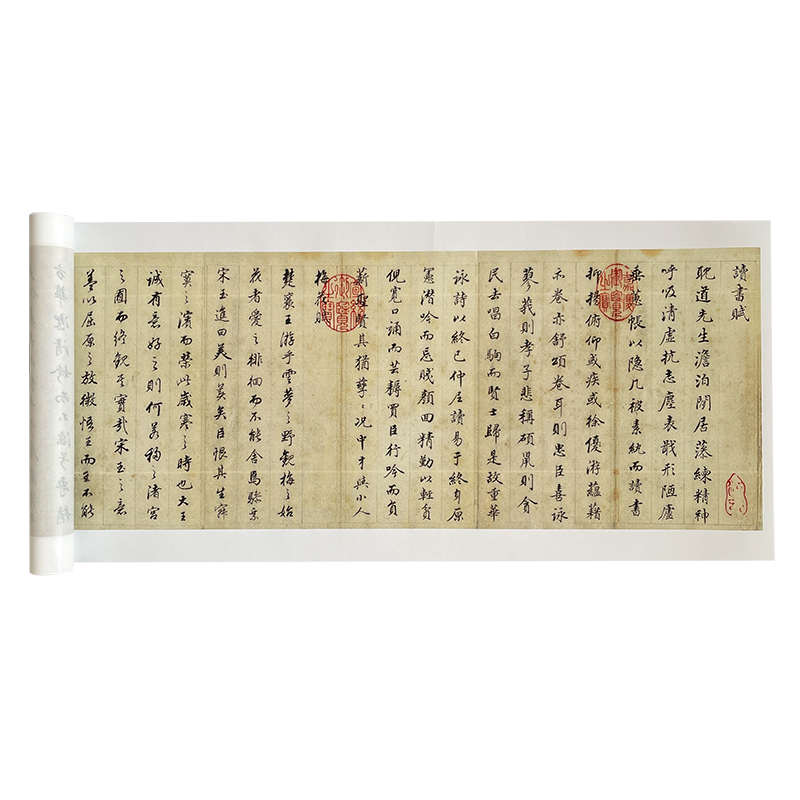 讀書賦
耽道先生澹泊閑居藻練精神
呼吸清虛抗志塵表戢形陋廬
垂帳以隐几被素而讀書
抑揚俯仰或疾或徐優游蘊藉
亦卷亦舒頌卷耳則忠臣喜詠
蓼莪則孝子悲稱碩鼠則貪
民去唱白駒而賢士歸是故重華
詠詩以終已仲尼讀易于終身原
憲潛吟而忘賤顏回精勤以輕貧
倪寬口誦而芸耨買臣行吟而負
薪聖賢其猶孳〻況中才與小人
梅花賦
楚襄王游乎雲夢之野觀梅之始
花者愛之徘徊而不能舍焉驂乘
宋玉進曰美則美矣臣恨其生寂
寞之濱而榮此歲寒之時也大王
誠有意好之則何若移之渚宮
之囿而終觀其實哉宋玉之意
蓋以屈原之放微悟王而王不能